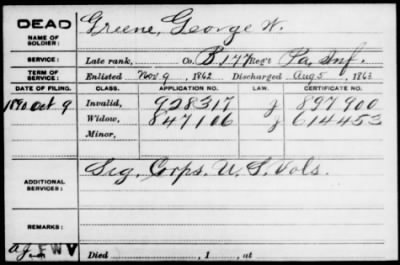 DEAD
NAME OF SOLDIER: Greene, George W.
SERVICE: Late rank, Co. B 177 Reg't Pa. Inf.
TERM OF SERVICE: Enlisted Nov 9, 1862 Discharged Aug 5, 1863
DATE OF FILING. CLASS. APPLICATION NO. LAW. CERTIFICATE NO.
1890 Oct 9 Invalid, 928317 J 897900
Widow, 847106 J 614453
Minor,
ADDITIONAL SERVICES: Sig. Corps. U. S. Vols.
REMARKS:
FWV
Died , 1 , at